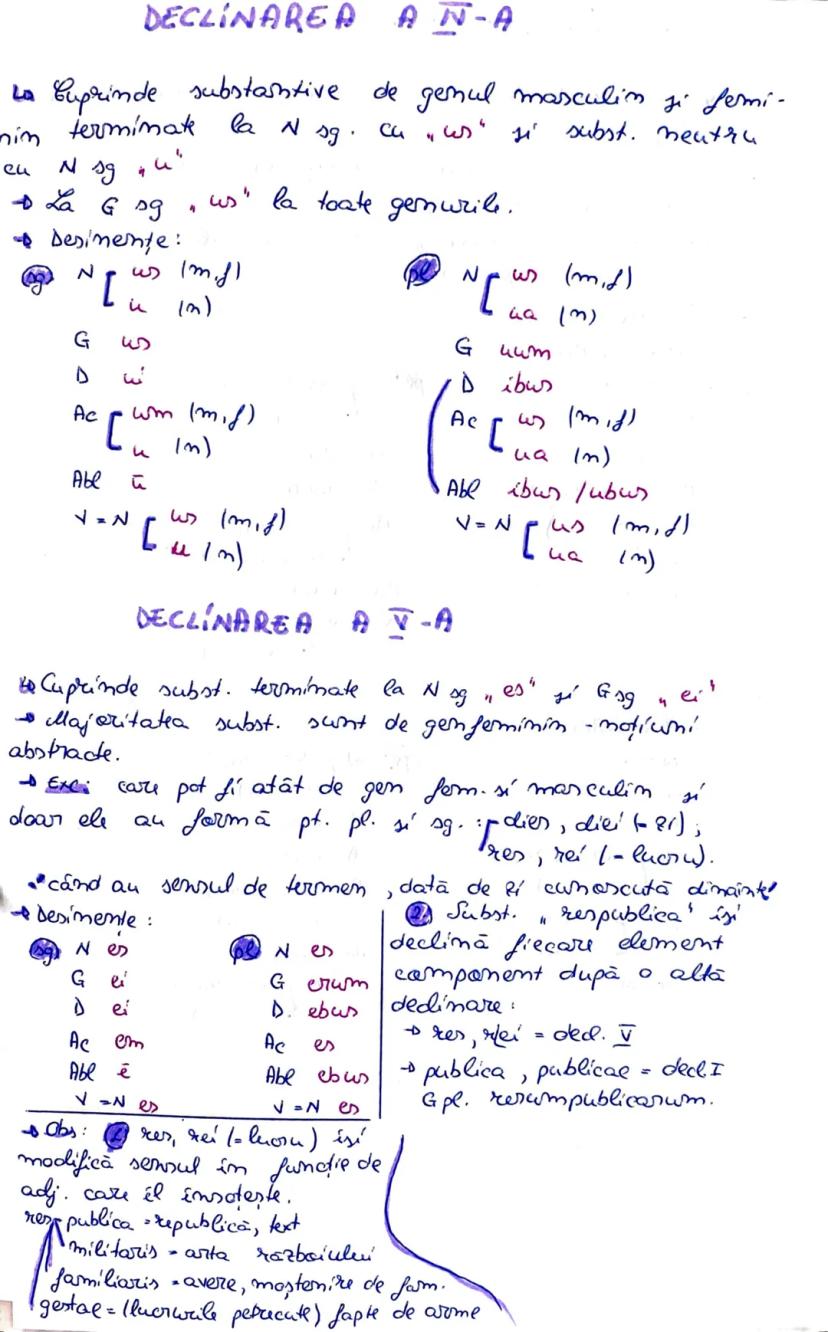 DECLINAREA A IV-A
↳ Cuprinde substantive de genul masculin și femi-
nin terminate la N sg. cu „us" și subst. neutru
cu N sg „u"
→ La G sg „us" la toate genurile.
→ Desinențe:
sg N [ us (m,f)
u (n)
G us
D ui
Ac [ um (m,f)
u (n)
Abl ū
V = N [ us (m,f)
u (n)
pl N [ us (m,f)
ua (n)
G uum
D ibus
Ac [ us (m,f)
ua (n)
Abl ibus / ubus
V = N [ us (m,f)
ua (n)
DECLINAREA A V-A
↳ Cuprinde subst. terminate la N sg „es" și G sg „ei"
→ Majoritatea subst. sunt de gen feminin - noțiuni
abstracte.
→ Exc: care pot fi atât de gen fem. și masculin și
doar ele au formă pt. pl. și sg. : dies, diei (- zi);
res, rei (- lucru).
când au sensul de termen, dată de zi cunoscută dinainte
→ Desinențe:
sg N es
G ei
D ei
Ac em
Abl ē
V = N es
pl N es
G erum
D. ebus
Ac es
Abl ebus
V = N es
2. Subst. „respublica" își
declină fiecare element
component după o altă
declinare:
→ res, rei = decl. V
→ publica, publicae = decl I
G pl. rerumpublicarum.
→ Obs: 1 res, rei (= lucru) își
modifică sensul în funcție de
adj. care îl însoțește.
res publica = republică, text
militaris = arta războiului
familiaris = avere, moștenire de fam.
gestae = (lucrurile petrecute) fapte de arme